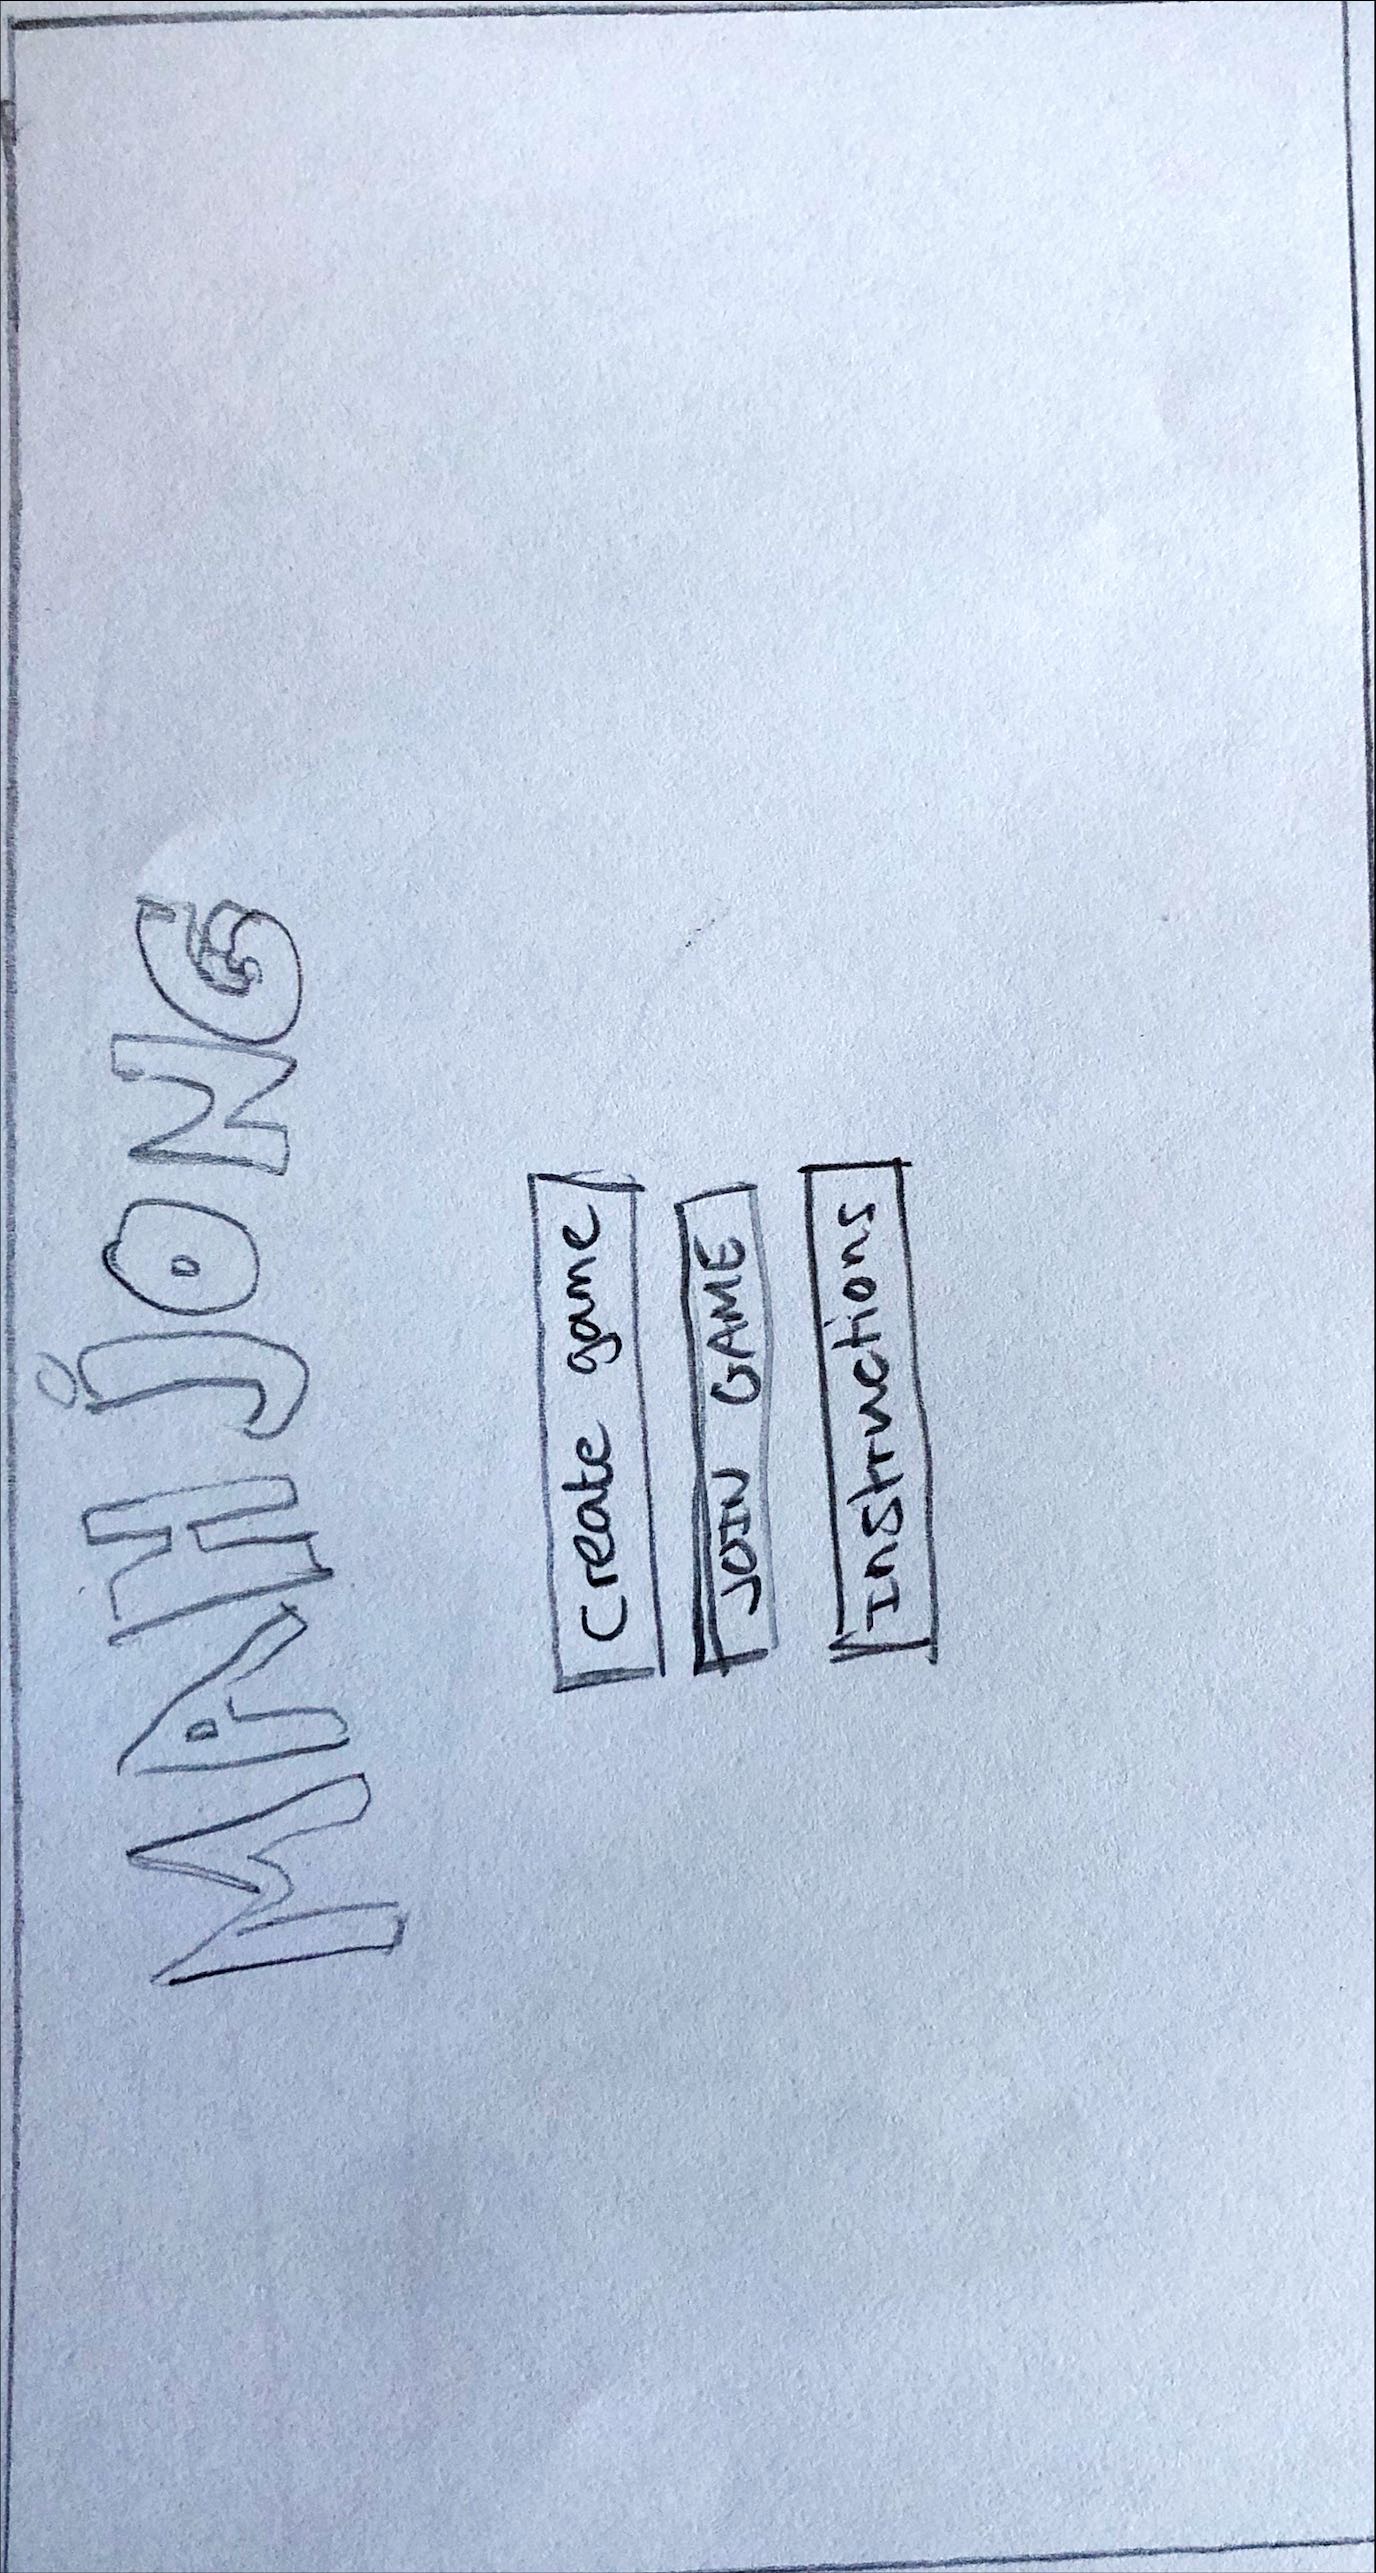 MAHjONG
Create game
JOIN GAME
Instructions